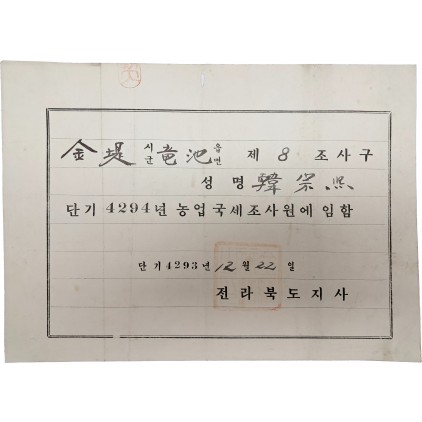 金堤 시군 竜池 읍면 제 8 조사구
성명 韓宗
단기 4294년 농업국세조사원에 임함
단기 4293년 12월 22일
전라북도지사